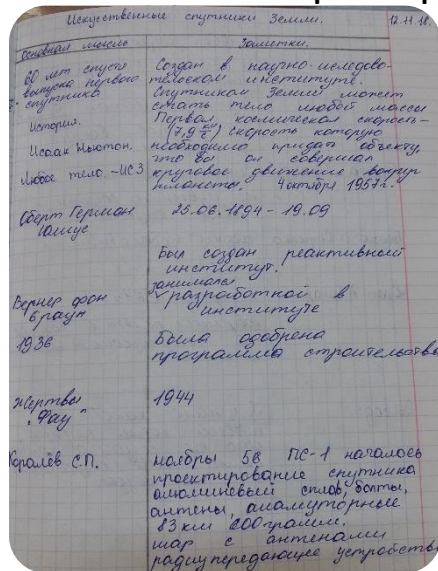 Искусственные спутники Земли. 12.11.18.
Основная мысль
Заметки.
60 лет спустя
выпуска первого
спутника
История.
Исаак Ньютон.
Любое тело - ИСЗ
Создан в научно-иследова-
тельском институте.
Спутником Земли может
стать тело любой массы
Первая космическая скорость-
(7,9 км/с) скорость которую
необходимо придать объекту,
что бы он совершал
круговое движение вокруг
планеты. 4 октября 1957г.
Оберт Герман
Юлиус
25.06.1894 - 19.09
Был создан реактивный
институт.
Вернер фон
Браун
занимался
разработкой в
институте
1936
Была одобрена
программа строительства
Жертвы
"Фау"
1944
Королёв С.П.
ноябры 56 ПС-1 началось
проектирование спутника
алюминевый сплав, болты,
антены,
83 км 600 грамм.
шар с антенами
радиупередающее устройство